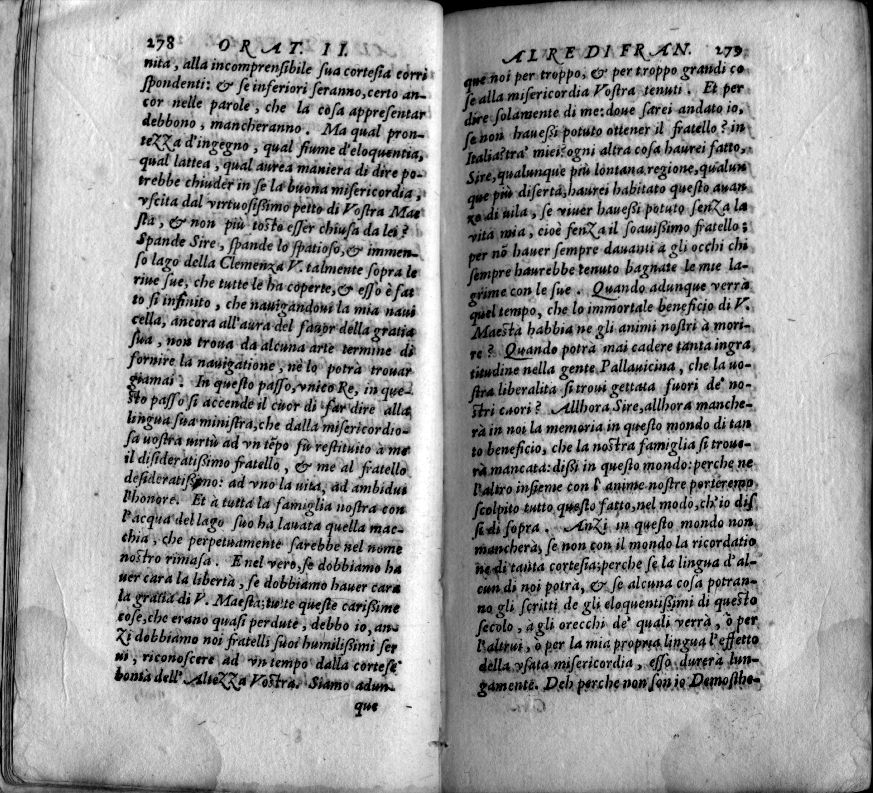 278 ORAT. II.
nita, alla incomprensibile sua cortesia corri
spondenti: & se inferiori seranno, certo an-
cor nelle parole, che la cosa appresentar
debbono, mancheranno. Ma qual pron-
tezza d'ingegno, qual fiume d'eloquentia,
qual lattea, qual aurea maniera di dire po-
trebbe chiuder in se la buona misericordia,
vscita dal virtuosissimo petto di Vostra Mae
sta, & non più tosto esser chiusa da lei?
Spande Sire, spande lo spatioso, & immen-
so lago della Clemenza V. talmente sopra le
riue sue, che tutte le ha coperte, & esso è fat
to si infinito, che nauigandoui la mia naui
cella, ancora all'aura del fauor della gratia
sua, non troua da alcuna arte termine di
fornire la nauigatione, nè lo potrà trouar
giamai. In questo passo, vnico Re, in que-
sto passo si accende il cuor di far dire alla
lingua sua ministra, che dalla misericordio-
sa uostra uirtù ad vn tẽpo fù restituito à me
il disideratissimo fratello, & me al fratello
desideratissimo: ad vno la uita, ad ambidui
l'honore. Et à tutta la famiglia nostra con
l'acqua del lago suo ha lauata quella mac-
chia, che perpetuamente sarebbe nel nome
nostro rimasa. E nel vero, se dobbiamo ha
uer cara la libertà, se dobbiamo hauer cara
la gratia di V. Maestà; tutte queste carissime
cose, che erano quasi perdute, debbo io, an-
zi dobbiamo noi fratelli suoi humilissimi ser
ui, riconoscere ad vn tempo dalla cortese
bontà dell'Altezza Vostra. Siamo adun-
que
AL RE DI FRAN. 279
que noi per troppo, & per troppo grandi co
se alla misericordia Vostra tenuti. Et per
dire solamente di me: doue sarei andato io,
se non hauessi potuto ottener il fratello? in
Italia? tra' miei? ogni altra cosa haurei fatto,
Sire, qualunque più lontana regione, qualun
que più diserta, haurei habitato questo auan
zo di uita, se viuer hauessi potuto senza la
vita mia, cioè senza il soauissimo fratello;
per nõ hauer sempre dauanti à gli occhi chi
sempre haurebbe tenuto bagnate le mie la-
grime con le sue. Quando adunque verrà
quel tempo, che lo immortale beneficio di V.
Maestà habbia ne gli animi nostri à mori-
re? Quando potrà mai cadere tanta ingra
titudine nella gente Pallauicina, che la uo-
stra liberalità si troui gettata fuori de' no-
stri cuori? Allhora Sire, allhora manche-
rà in noi la memoria in questo mondo di tan
to beneficio, che la nostra famiglia si troue-
rà mancata: dissi in questo mondo: perche ne
l'altro insieme con l'anime nostre porteremo
scolpito tutto questo fatto, nel modo, ch'io dis
si di sopra. Anzi in questo mondo non
mancherà, se non con il mondo la ricordatio
ne di tanta cortesia; perche se la lingua d'al-
cun di noi potrà, & se alcuna cosa potran-
no gli scritti de gli eloquentissimi di questo
secolo, à gli orecchi de' quali verrà, ò per
l'altrui, ò per la mia propria lingua l'effetto
della vsata misericordia, esso durerà lun-
gamente. Deh perche non son io Demosthe-